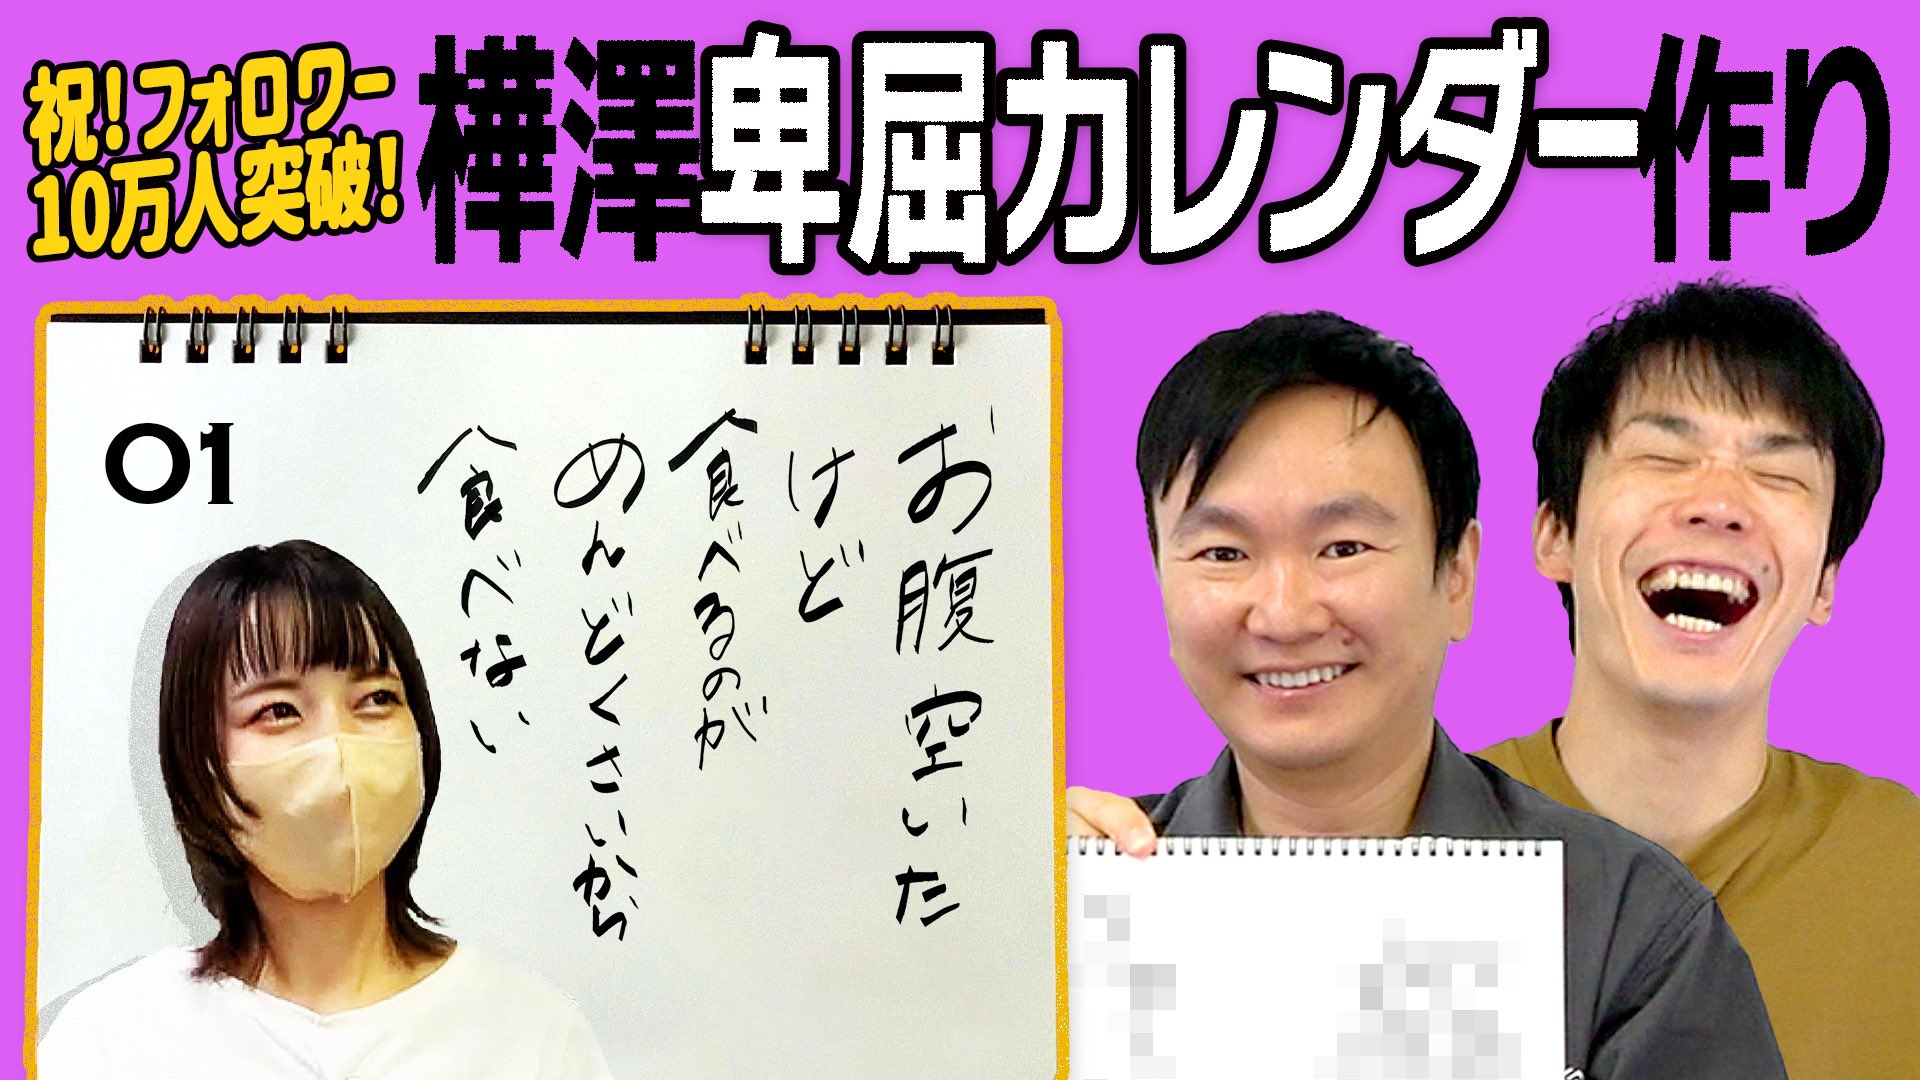 祝!フォロワー
10万人突破!
樺澤卑屈カレンダー作り
01
お腹空いた
けど
食べるのが
めんどくさいから
食べない